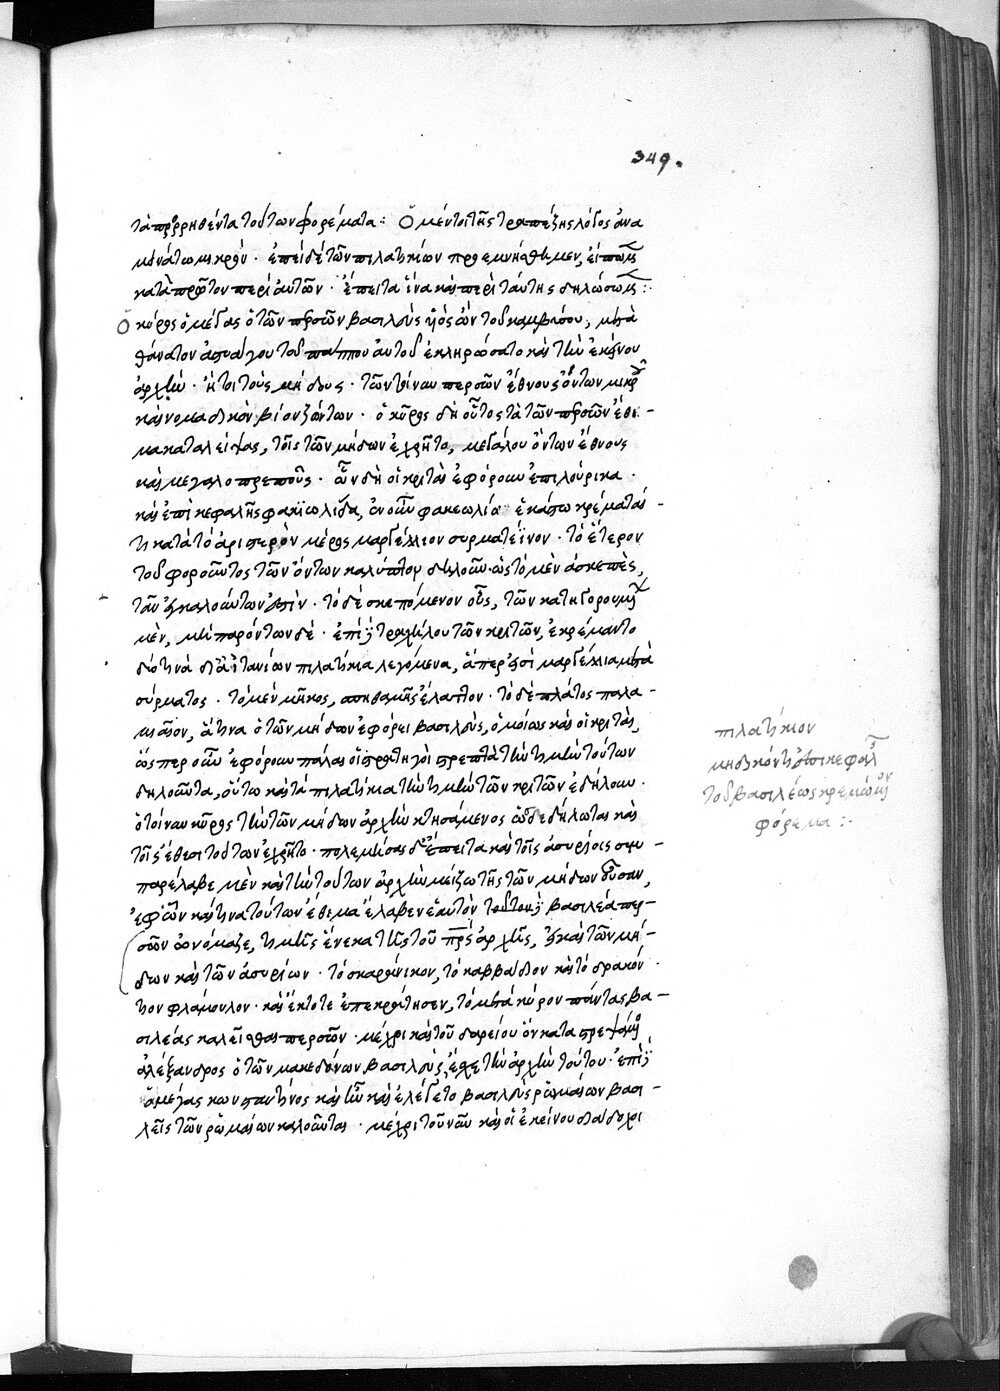 349.
τὰ προρρηθέντα τούτων φορέματα : Ὁ μέντοι τῆς τραπέζης λόγος ἀνα
μεινάτω μικρόν · ἐπεὶ δὲ τῶν πιλατικίων προεμνήσθημεν, εἴπωμεν
κατὰ πρῶτον περὶ αὐτῶν · ἔπειτα ἵνα καὶ περὶ ταύτης δηλώσωμεν :
Ὁ κῦρος ὁ μέγας ὁ τῶν περσῶν βασιλεὺς υἱὸς ὢν τοῦ καμβύσου, μετὰ
θάνατον ἀστυάγου τοῦ πάππου αὐτοῦ ἐκληρώσατο καὶ τὴν ἐκείνου
ἀρχὴν · ἤτοι τοὺς μήδους · τῶν τοίνυν περσῶν ἔθνους ὄντων μικροῦ
καὶ νομαδικὸν βίον ζώντων · ὁ κῦρος δὴ οὗτος τὰ τῶν περσῶν ἔθι-
μα καταλείψας, τοῖς τῶν μήδων ἐχρῆτο, μεγάλου ὄντων ἔθνους
καὶ μεγαλοπρεποῦς · ὧν δὴ οἱ κριταὶ ἐφόρουν ἐπιλούρικα ·
καὶ ἐπὶ κεφαλῆς φακιωλίδα, ἀν οὖν φακεωλία ἑκάστω κρέματαί
τι κατὰ τὸ ἀριστερὸν μέρος μαργέλλιον συρματέϊνον · τὸ ἕτερον
τοῦ φοροῦντος τῶν ὄντων καλύπτον δηλοῦν ὡς τὸ μὲν ἀσκεπὲς,
τῶν ἐγκαλούντων ἐστὶν · τὸ δὲ σκεπόμενον οὖς, τῶν κατηγορουμέ
μὲν, μὴ παρόντων δὲ · ἐπὶ τραχήλου τῶν κριτῶν, ἐκρέμαντο
διττὰ διὰ ταινίων πιλατίκια λεγόμενα, ἅπερ εἰσὶ μαργέλλια μετὰ
σύρματος · τὸ μὲν μῆκος, σπιθαμῆς ἔλαττον · τὸ δὲ πλάτος παλα-
μιαῖον, ἅτινα ὁ τῶν μήδων ἐφόρει βασιλεὺς, ὁμοίως καὶ οἱ κριταὶ,
ὥσπερ οὖν ἐφόρουν πάλαι οἱ στρατηγοὶ στρεπτὰ τὴν τιμὴν τούτων
δηλοῦντα, οὕτω καὶ τὰ πιλατίκια τὴν τιμὴν τῶν κριτῶν ἐδήλουν ·
ὁ τοίνυν κῦρος τὴν τῶν μήδων ἀρχὴν κτησάμενος ὧδε δεδήλωται καὶ
τοῖς ἔθεσι τούτων ἐχρῆτο · πολεμήσας δὲ ἔπειτα καὶ τοῖς ἀσυρίοις συμ-
παρέλαβε μὲν καὶ τὴν τούτων ἀρχὴν μείζω τῆς τῶν μήδων οὖσαν,
ἐφ᾽ ὧν καὶ τινα τούτων ἔθιμα ἔλαβεν ἑαυτὸν βασιλέα περ-
σῶν ὠνόμαζε, τιμῆς ἕνεκα τῆς τοῦ πρς ἀρχῆς, καὶ τῶν μή-
δων καὶ τῶν ἀσυρίων · τὸ σκαράνικον, τὸ καββάδιον καὶ τὸ δρακόν
τιον φλάμουλον · καὶ ἔκτοτε ἐπεκράτησεν, τὸ μετὰ κύρον πάντας βα-
σιλέας καλεῖσθαι περσῶν · μέχρι καὶ τοῦ δαρείου ὃν καταστρεψάμενος
ἀλέξανδρος ὁ τῶν μακεδόνων βασιλεὺς, ἔσχε τὴν ἀρχὴν τούτου · ἐπεὶ
ὁ μέγας κωνσταντῖνος καὶ ἦν καὶ ἐλέγετο βασιλεὺς ῥωμαίων βασι-
λεῖς τῶν ῥωμαίων καλοῦνται · μέχρι τοῦ νῦν καὶ οἱ ἐκείνου διάδοχοι
πιλατίκιον
μηδικὸν τι ἀπὸ κεφαλ
τοῦ βασιλέως κρεμάμενον
φόρεμα :